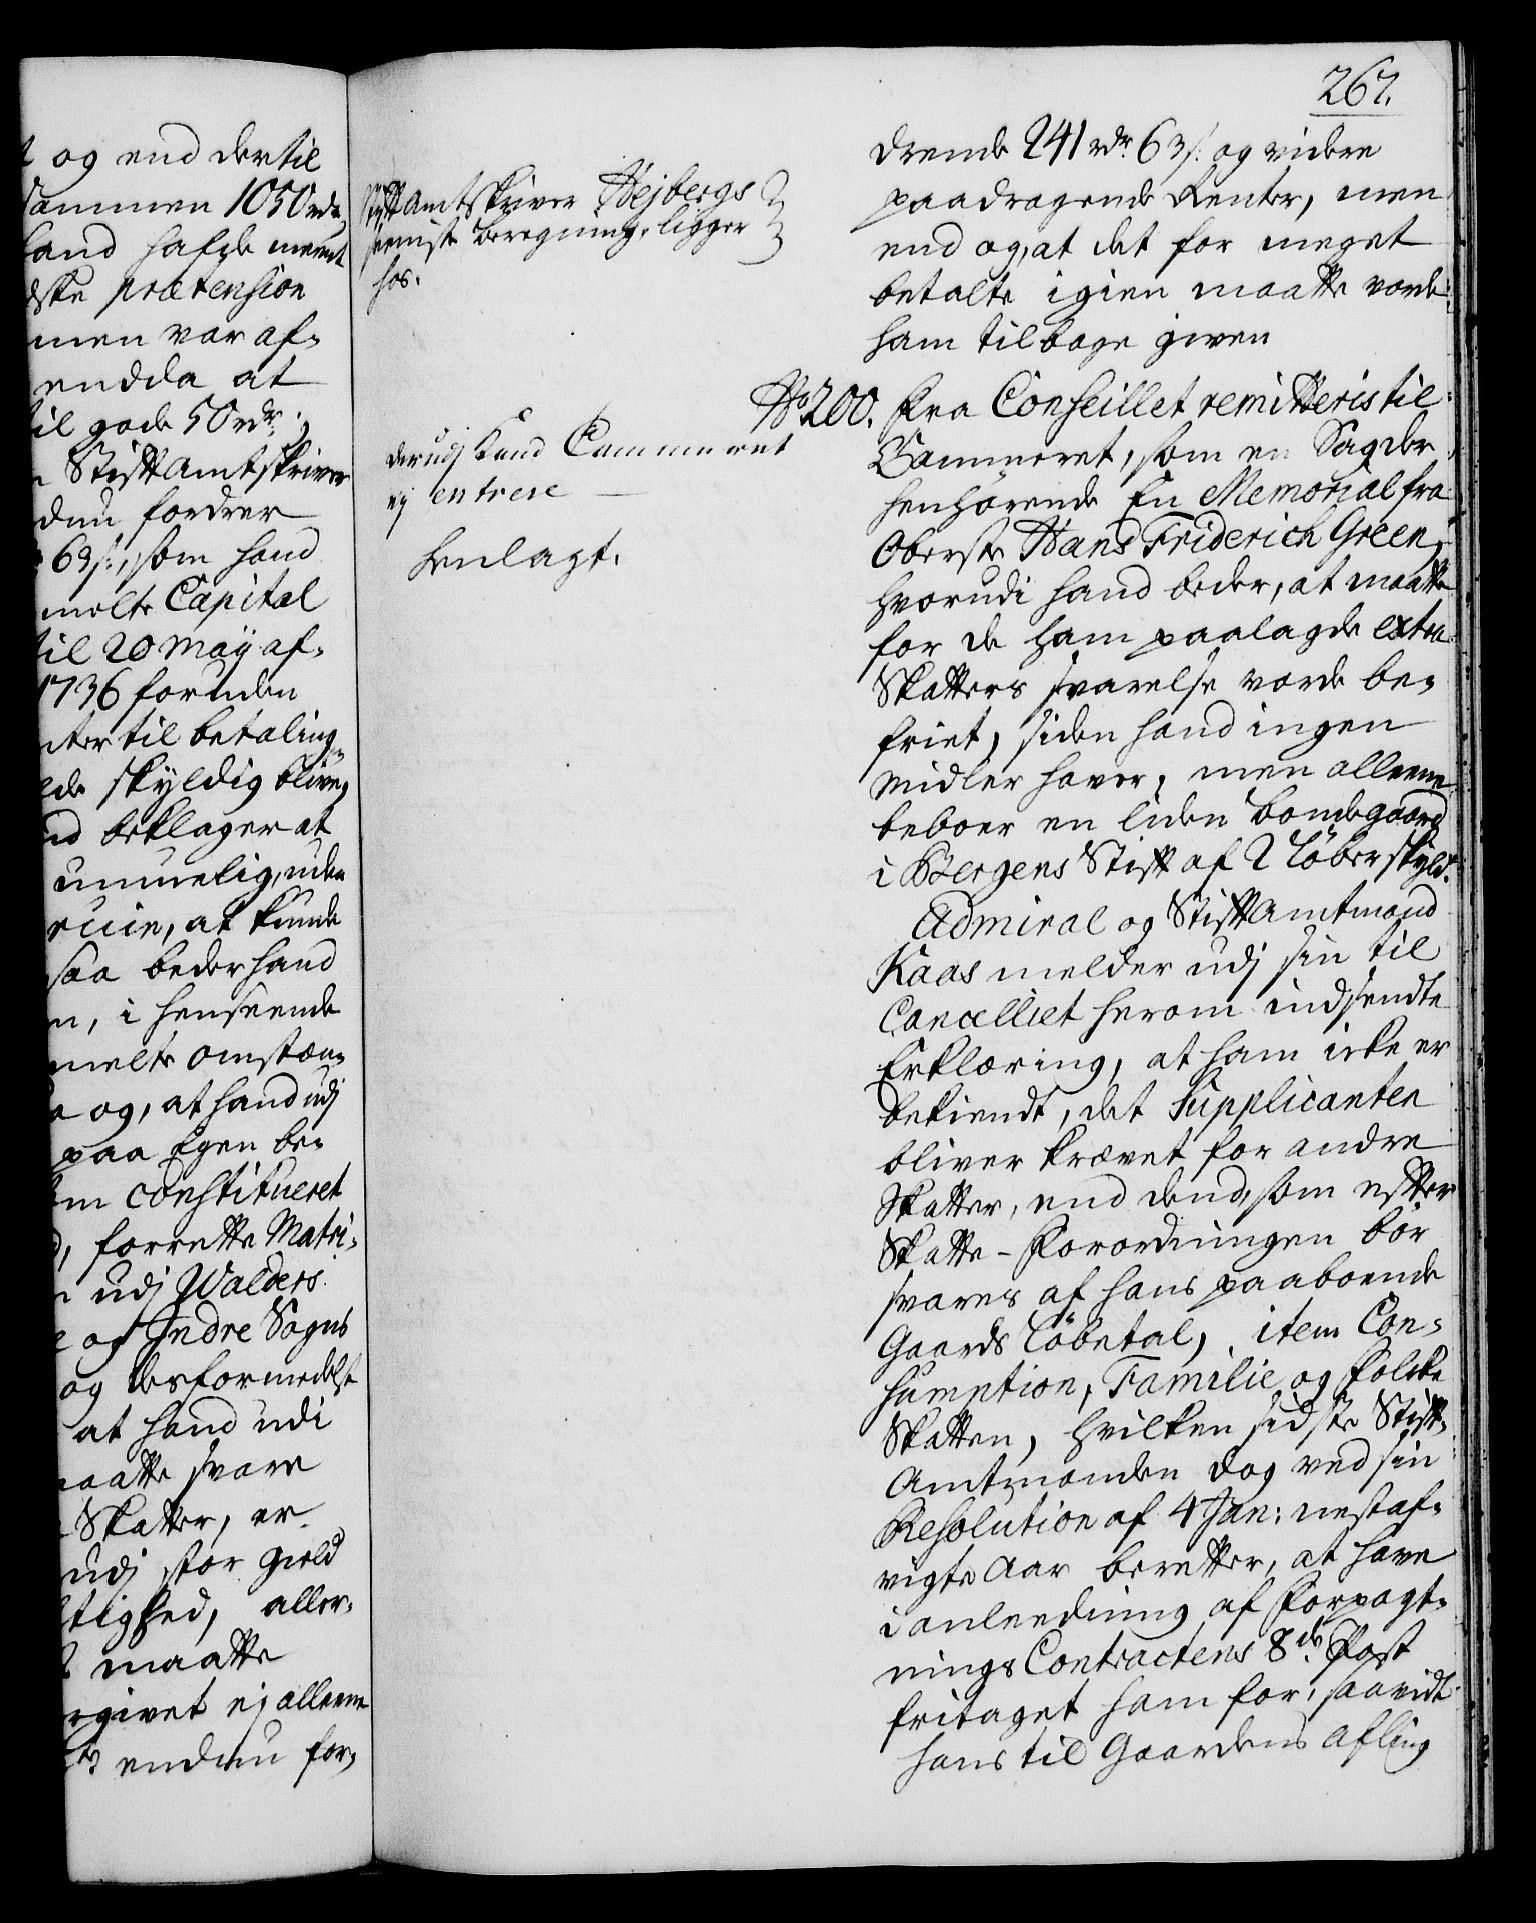 267.
og end dertil
sammen 1050 rdr.
hand hafde meent
dske prætension
men var af-
endda at
til gode 50 rdr.;
Stiftamtskriver
dnu fordrer
63 s:, som hand
melte Capital
til 20 Maÿ af-
1736 foruden
nter til betaling,
lde skyldig blive,
nd beklager at
umuelig, uden
ruin, at kunde
saa beder hand
n, i henseende
melte omstæn-
a og, at hand udj
paa Egen be-
m constitueret
, forrette Matri-
n udj Walders
e og Indre Sogns
og desformedelst
at hand udi
maatte svare
Skatter, er
udj stor gield
tighed, aller-
maatte
rgivet ej alleene
endnu for-
StiftAmtskriver Hejbergs
seeniste beregning, ligger
hos.
derudj kand Cammeret
ej entrere
henlagt.
drende 241 rdr. 63 s: og videre
paadragende Renter, men
end og, at det for meget
betalte igien maatte vorde
ham tilbage given
No 200. Fra Conseillet remitteris til
Cammeret, som en Sag der
henhörende En Memorial fra
Oberste Hans Friderich Green,
hvorudi hand beder, at maatte
for de ham paalagde extra
Skatters svarelse vorde be-
friet, siden hand ingen
midler haver, men alleene
beboer en liden bondegaard
i Bergens Stift af 2 löber skyld.
Admiral og StiftAmtmand
Kaas melder udj sin til
Cancelliet herom indsendte
Erklæring, at ham icke er
bekiendt, det Supplicanten
bliver krævet for andre
Skatter, end dend, som efter
Skatte-Forordningen bör
svares af hans paaboende
Gaards löbetal, item Con-
sumption, Familie og Folcke
Skatten, hvilken sidste Stift-
Amtmanden dog ved sin
Resolution af 4 Jan: nestaf-
vigte Aar beretter, at have
i anleedning af Forpagt-
nings Contractens 8de Post
fritaget ham for, saavidt
hans til Gaardens Afling